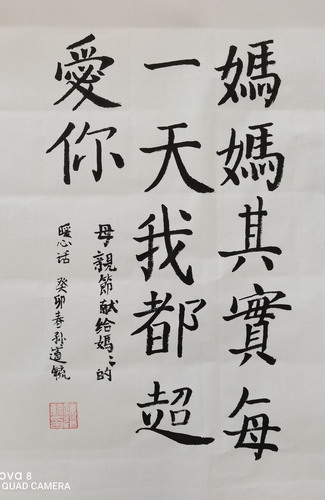 媽媽其實每
一天我都超
愛你
母親節献给媽〻的
暖心话 癸卯春孙道毓
nova 8
QUAD CAMERA